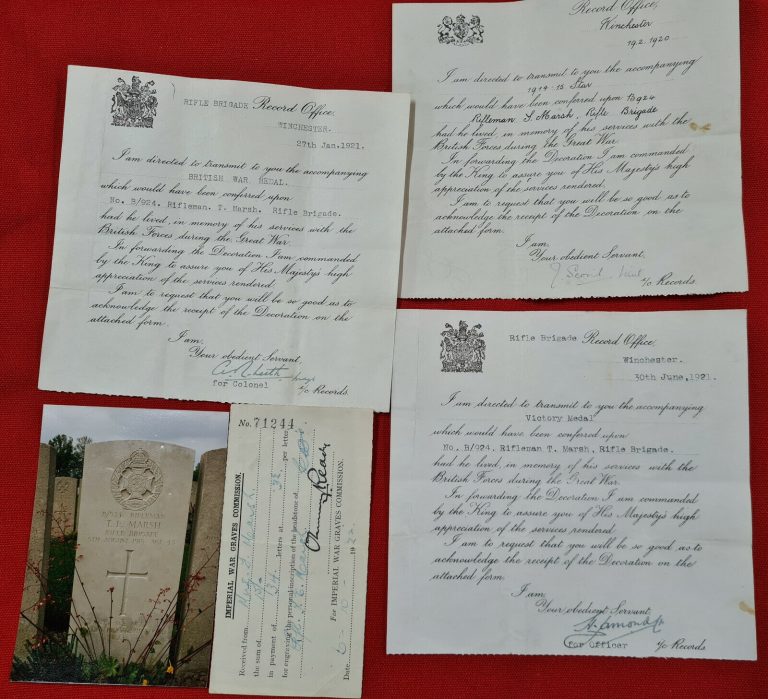 RIFLE BRIGADE Record Office,
WINCHESTER.
27th Jan. 1921.
I am directed to transmit to you the accompanying
BRITISH WAR MEDAL.
which would have been conferred upon
No. B/924. Rifleman. T. Marsh. Rifle Brigade.
had he lived, in memory of his services with the
British Forces during the Great War.
In forwarding the Decoration I am commanded
by the King to assure you of His Majesty's high
appreciation of the services rendered.
I am to request that you will be so good as to
acknowledge the receipt of the Decoration on the
attached form.
I am,
Your obedient Servant,
for Colonel i/c Records.
Record Office,
Winchester
19.2.1920
I am directed to transmit to you the accompanying
1914-15 Star
which would have been conferred upon B924
Rifleman. T. Marsh, Rifle Brigade
had he lived, in memory of his services with the
British Forces during the Great War.
In forwarding the Decoration I am commanded
by the King to assure you of His Majesty's high
appreciation of the services rendered.
I am to request that you will be so good as to
acknowledge the receipt of the Decoration on the
attached form.
I am,
Your obedient Servant,
i/c Records.
Rifle Brigade Record Office,
Winchester.
30th June, 1921.
I am directed to transmit to you the accompanying
Victory Medal
which would have been conferred upon
No. B/924. Rifleman T. Marsh, Rifle Brigade.
had he lived, in memory of his services with the
British Forces during the Great War.
In forwarding the Decoration I am commanded
by the King to assure you of His Majesty's high
appreciation of the services rendered.
I am to request that you will be so good as to
acknowledge the receipt of the Decoration on the
attached form.
I am,
Your obedient Servant,
for Officer i/c Records.
RIFLEMAN
MARSH
RIFLE BRIGADE
No. 71244
IMPERIAL WAR GRAVES COMMISSION.
Received from Marsh
the sum of
in payment of letters at per letter
for engraving the personal inscription of the headstone of
For IMPERIAL WAR GRAVES COMMISSION.
Date